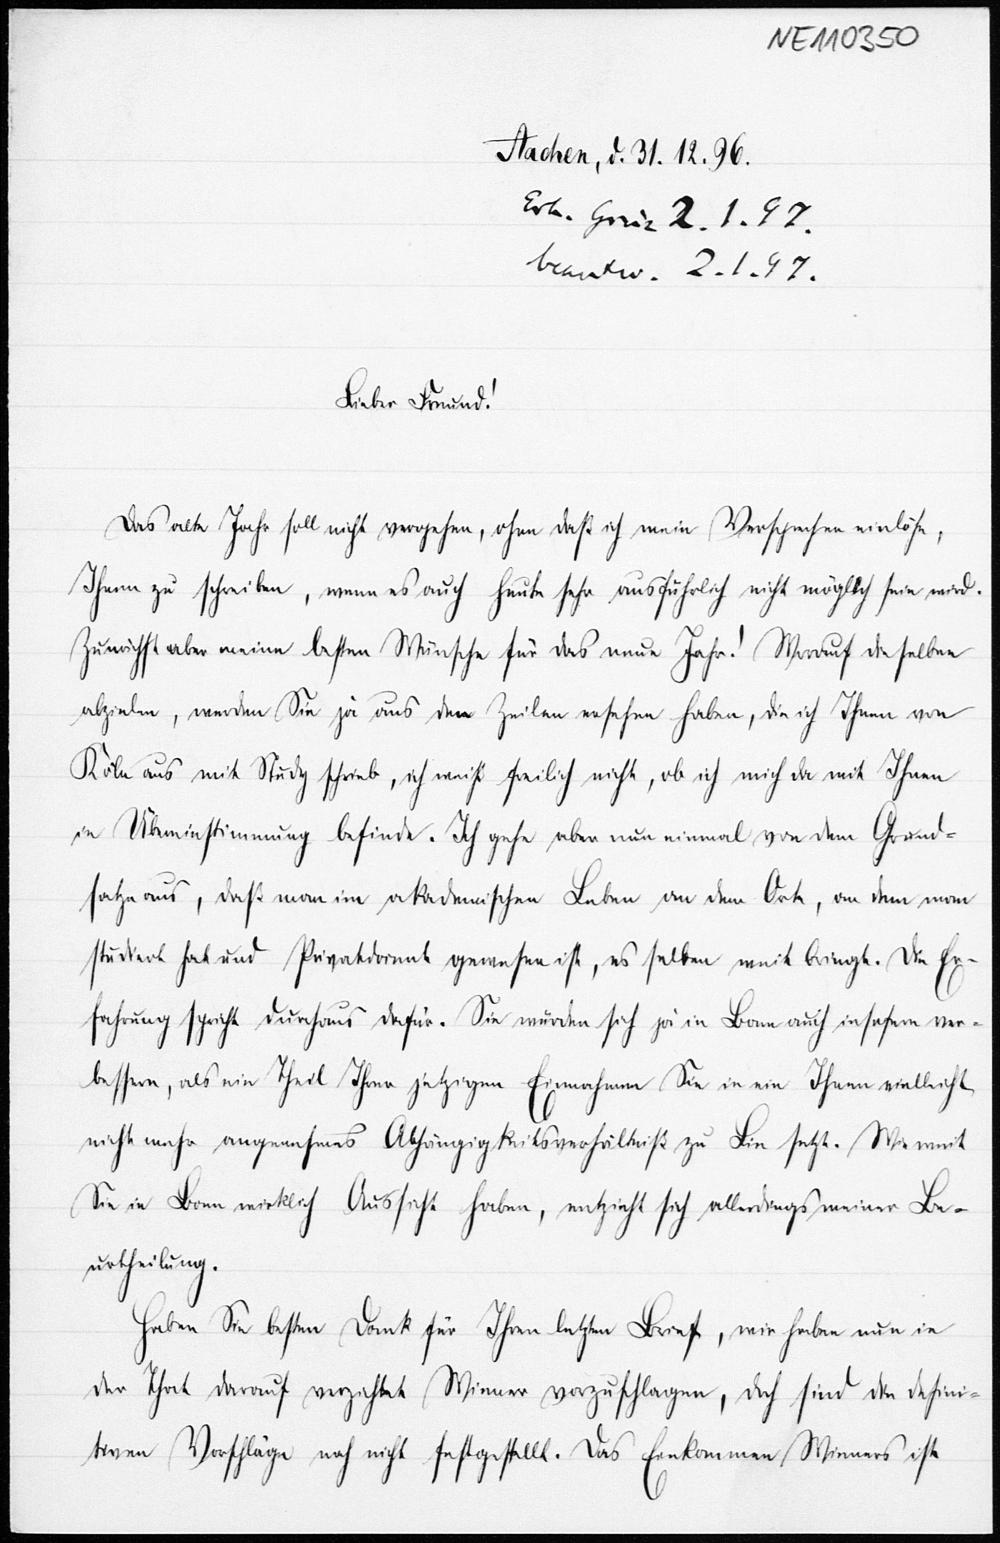 NE110350
Aachen, d. 31. 12. 96.
Erh. Greiz 2. 1. 97.
beantw. 2. 1. 97.
Lieber Freund!
Das alte Jahr soll nicht vergehen, ohne daß ich mein Versprechen einlöse,
Ihnen zu schreiben, wenn es auch heute sehr ausführlich nicht möglich sein wird.
Zunächst aber meine besten Wünsche für das neue Jahr! Worauf dieselben
abzielen, werden Sie ja aus den Zeilen ersehen haben, die ich Ihnen von
Köln aus mit Study schrieb, ich weiß freilich nicht, ob ich mich da mit Ihnen
in Übereinstimmung befinde. Ich gehe aber nun einmal von dem Grund-
satze aus, daß man im akademischen Leben an dem Orte, an dem man
studiert hat und Privatdocent gewesen ist, es selten weit bringt. Die Er-
fahrung spricht durchaus dafür. Sie würden sich ja in Bonn auch insofern ver-
bessern, als ein Theil Ihrer jetzigen Einnahmen Sie in ein Ihnen vielleicht
nicht mehr angenehmes Abhängigkeitsverhältniß zu Lie setzt. Wie weit
Sie in Bonn wirklich Aussicht haben, entzieht sich allerdings meiner Be-
urtheilung.
Haben Sie besten Dank für Ihren letzten Brief, wir haben nun in
der That darauf verzichtet Wiener vorzuschlagen, doch sind die defini-
tiven Vorschläge noch nicht festgestellt. Das Einkommen Wieners ist